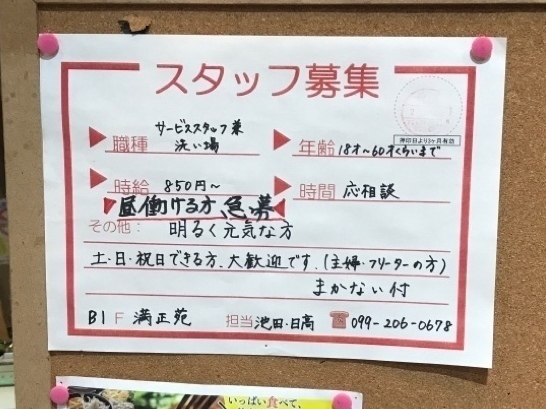 スタッフ募集
押印日より3ヶ月有効
職種 サービススタッフ兼 洗い場
年齢 18才〜60才くらいまで
時給 850円〜
時間 応相談
昼働ける方、急募
その他: 明るく元気な方
土・日・祝日できる方、大歓迎です。(主婦・フリーターの方)
まかない付
B1F 満正苑 担当 池田・日高 ☎ 099-206-0678
いっぱい食べて、